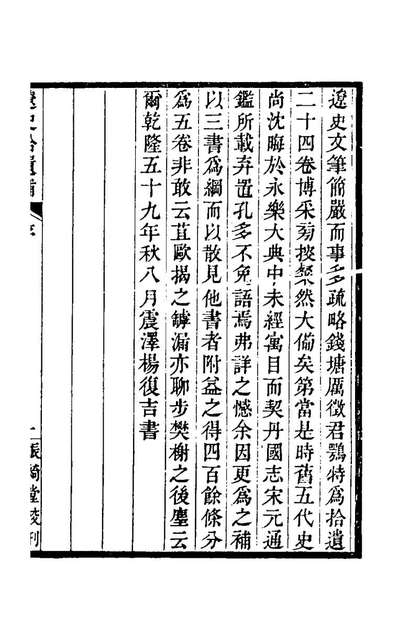 遼史文筆簡嚴而事多疏略錢塘厲徵君鶚特為拾遺
二十四卷博采菊搜粲然大備矣第當是時舊五代史
尚沈晦於永樂大典中未經寓目而契丹國志宋元通
鑑所載弃置孔多不免語焉弗詳之憾余因更為之補
以三書為綱而以散見他書者附益之得四百餘條分
為五卷非敢云苴歐揭之罅漏亦聊步樊榭之後塵云
爾乾隆五十九年秋八月震澤楊復吉書
遼史拾遺補
序
二
振綺堂校刊